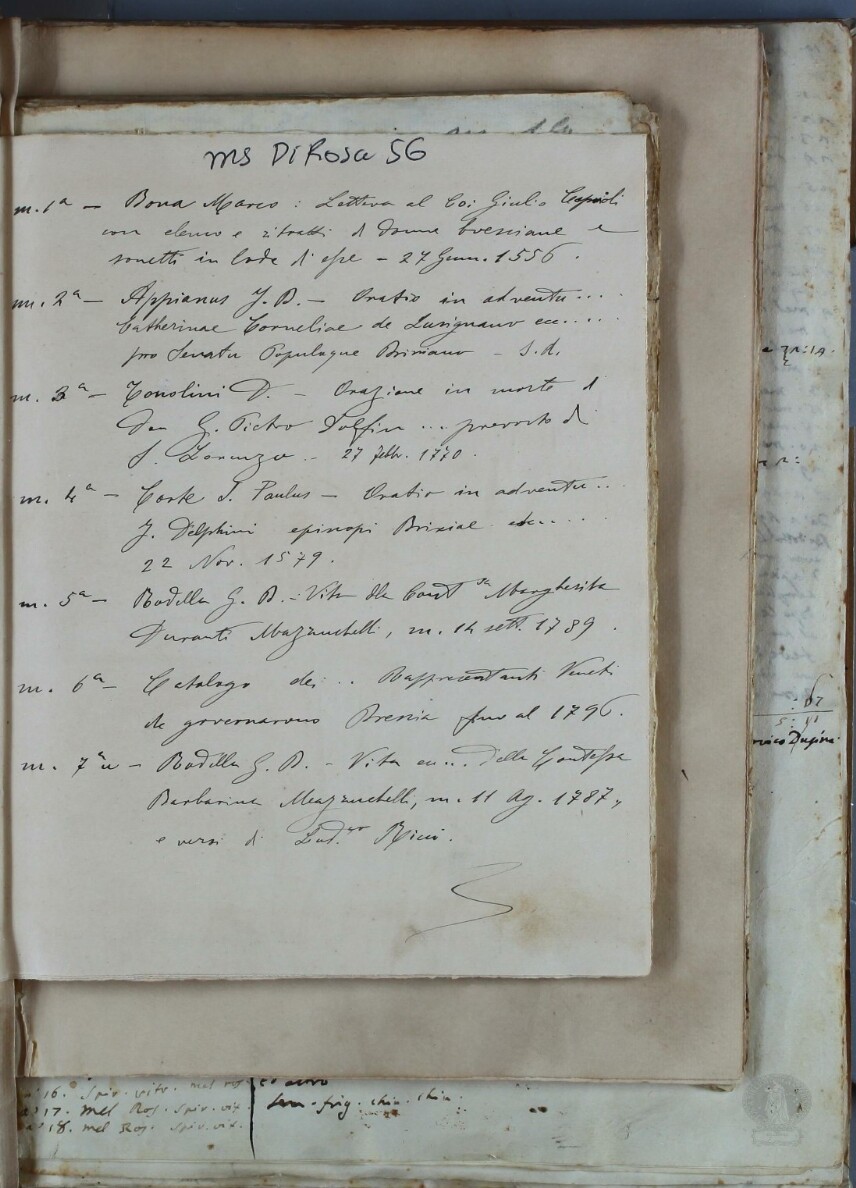 ms Di Rosa 56
m. 1ª — Bona Marco : Lettera al Co: Giulio
con elenco e ritratti di donne bresciane e
sonetti in lode di esse – 27 Genn. 1556.
m. 2ª – Appianus J. B. – Oratio in adventu....
Catherinae Corneliae de Lusignano ec....
pro Senatu Populoque Brixiano – s. d.
m. 3ª – Tonolini D. – Orazione in morte di
Don G. Pietro Dolfin ... prevosto di
S. Lorenzo – 27 febb. 1770.
m. 4ª – Corte S. Paulus – Oratio in adventu...
J. Delphini episcopi Brixiae etc....
22 Nov. 1579.
m. 5ª – Rodella G. B. – Vita della Cont.sa Margherita
Duranti Mazzuchelli, m. 14 sett. 1789.
m. 6ª – Catalogo dei .. Rappresentanti Veneti
che governarono Brescia fino al 1796.
m. 7ª – Rodella G. B. – Vita ec... della Contessa
Barbarina Mazzuchelli, m. 11 Ag. 1787,
e versi di Lud.co Ricci.
16. Spir. vitr. mel ros.
17. mel Ros. Spir. vit.
18. mel Ros. Spir. vit.
frig. chia. chia.